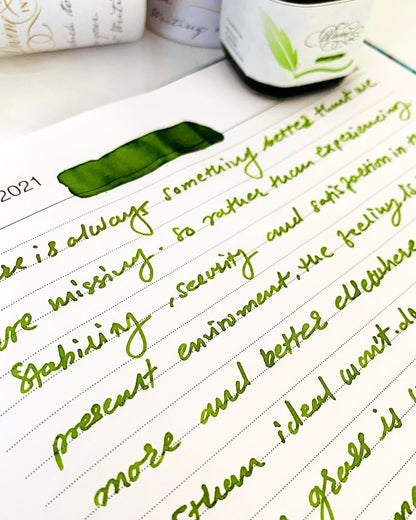 Writing
2021
is always something better that we
are missing. So rather than experiencing
Stability, security and satisfaction in
present environment, the feeling
more and better elsewhere
than ideal won't
grass is